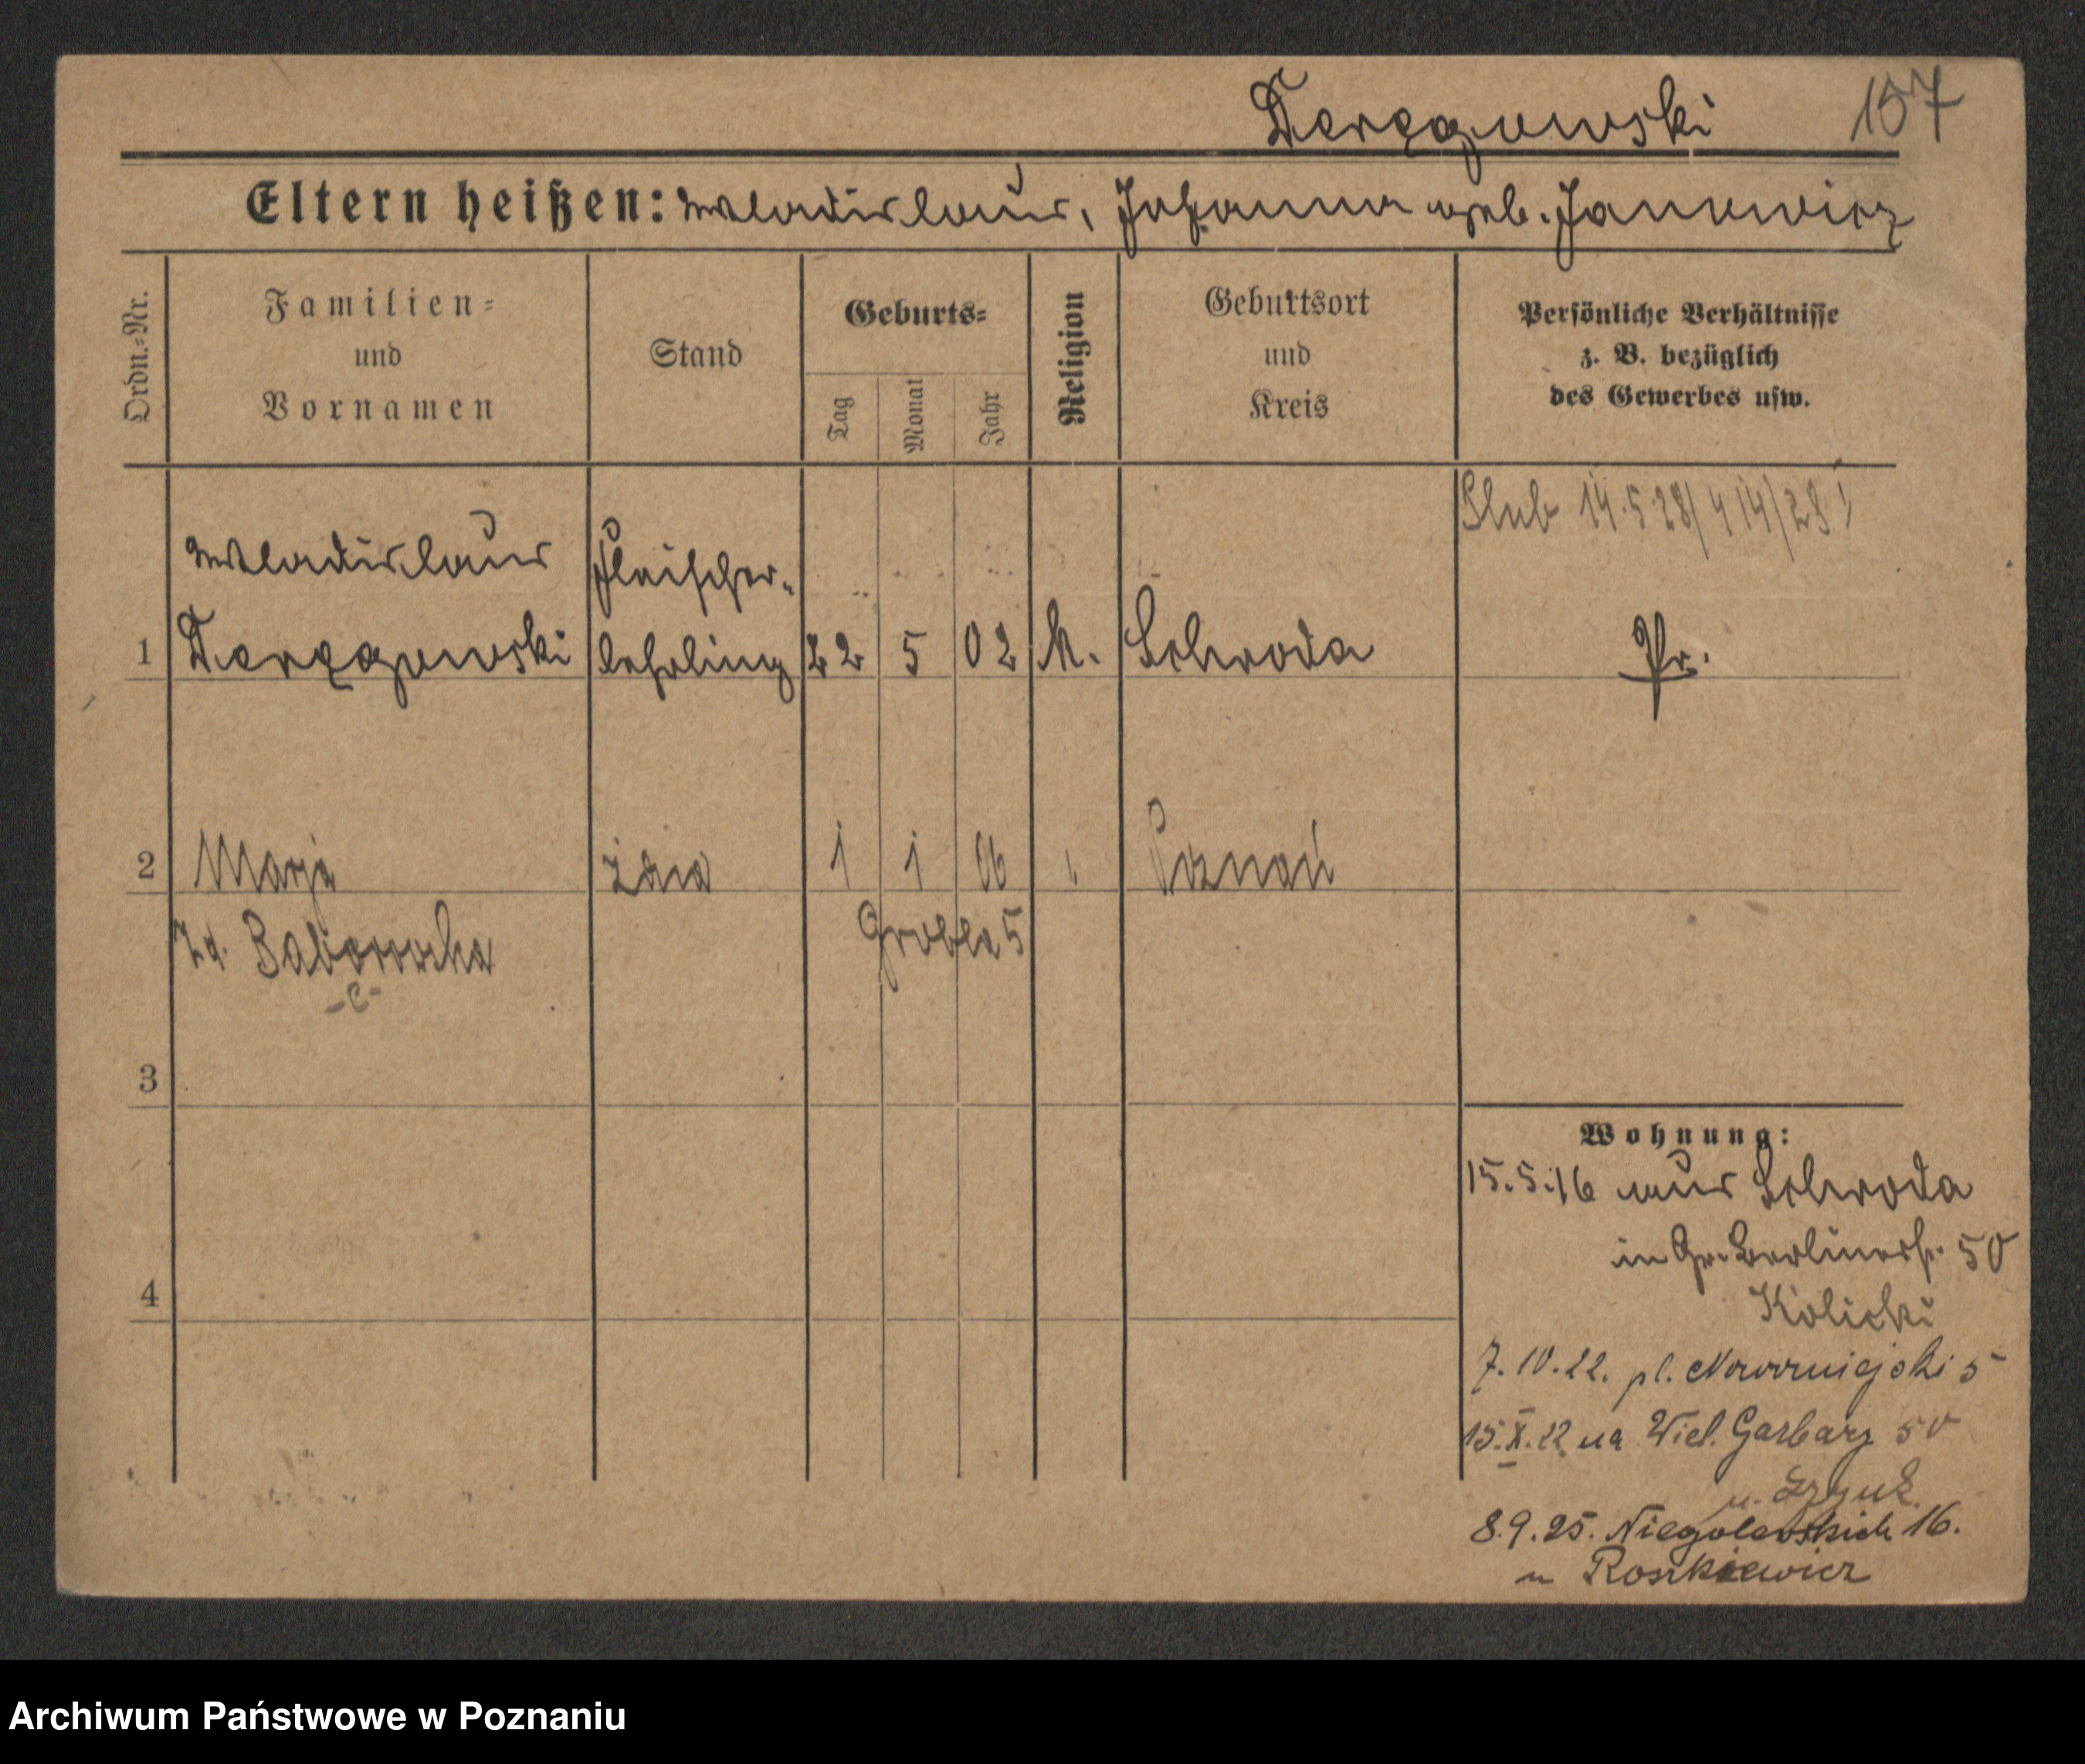 Deręgowski 157
Eltern heißen: Wladislaus, Johanna geb. Jankewicz
Ordn.-Nr.
Familien-
und
Vornamen
Stand
Geburts-
Tag
Monat
Jahr
Religion
Geburtsort
und
Kreis
Persönliche Verhältnisse
z. B. bezüglich
des Gewerbes usw.
Ślub 14.5.28/414/28
Wladislaus Fleischer-
1 Deręgowski lehrling 22 5 02 k. Schroda Pr.
2 Marja żona 1 1 06 Poznań
Zd. Grobla 5
3
Wohnung:
15.5.16 aus Schroda
in Gr. Berlinerstr. 50
Kolicki
4
7.10.22. pl. Nowomiejski 5
15.X.22 na Wiel. Garbary 50
u.
8.9.25. Niegolewskich 16.
u Roszkiewicz
Archiwum Państwowe w Poznaniu